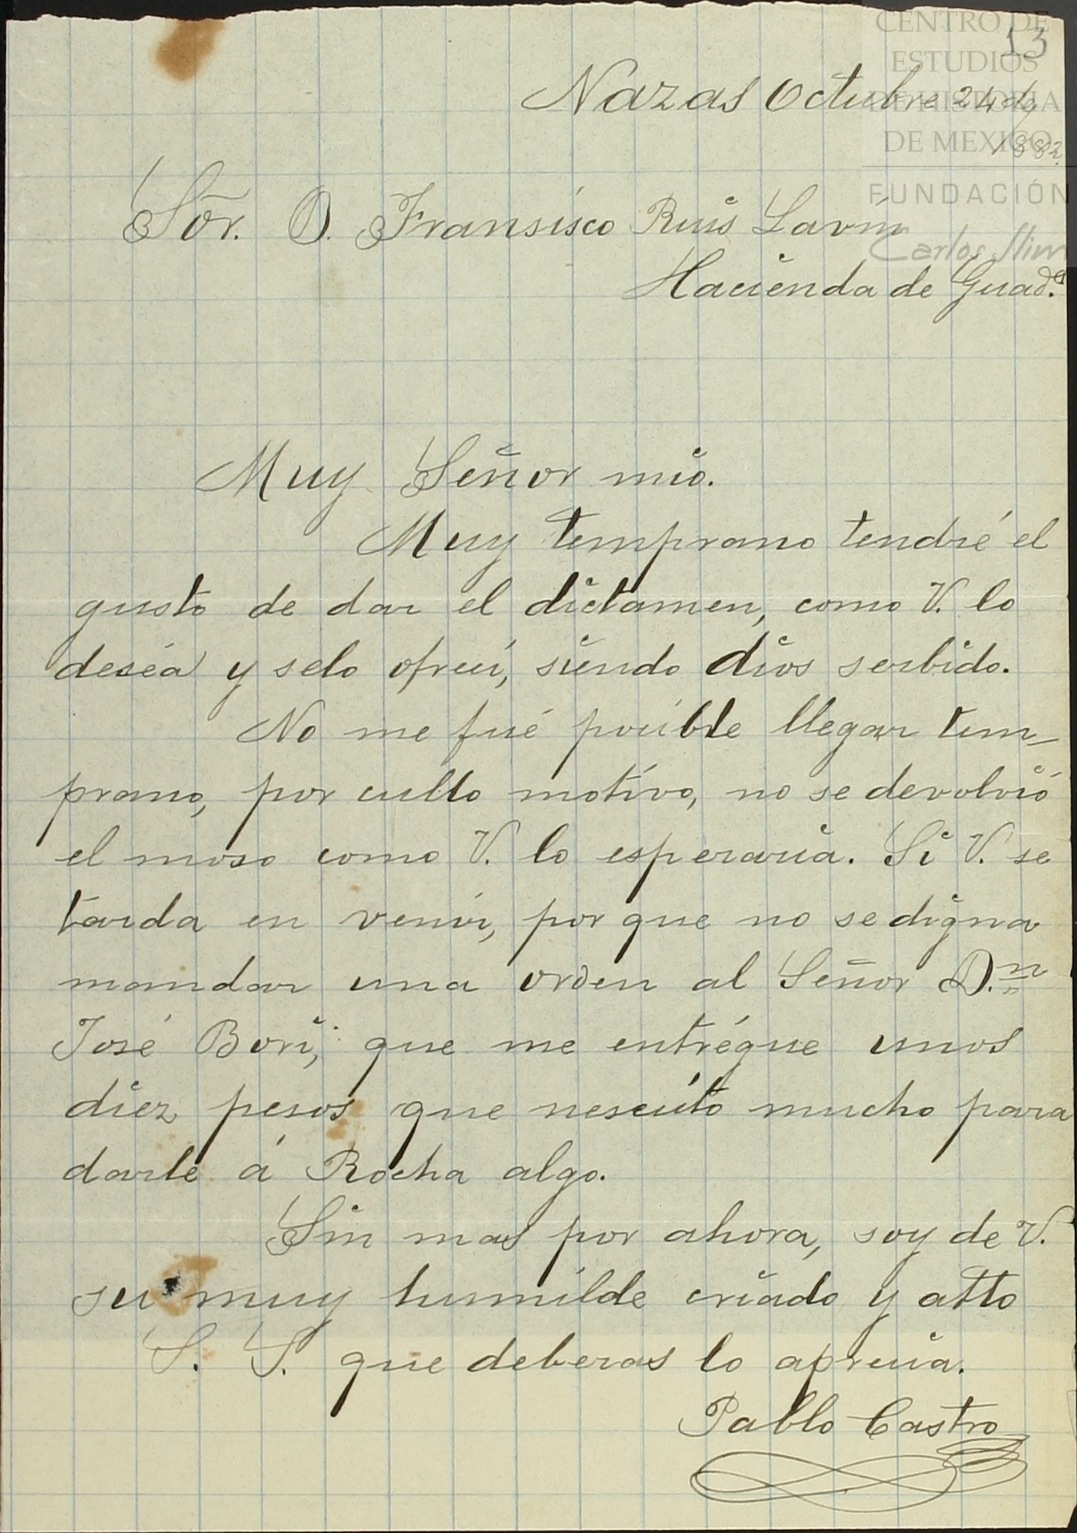 13
CENTRO DE
ESTUDIOS
DE HISTORIA
DE MEXICO
FUNDACIÓN
Carlos Slim
Nazas Octubre 24 de
1882.
Sõr. D. Fransisco Ruis Lavín
Hacienda de Guad.e
Muy Señor mio.
Muy temprano tendré el
gusto de dar el dictamen, como V. lo
deséa y selo ofrecí, siendo dios serbido.
No me fué pocible llegar tem_
prano, por cullo motivo, no se devolvió
el moso como V. lo esperaria. Si V. se
tarda en venir, por que no se digna
mandar una orden al Señor D.n
José Bori, que me entrégue unos
diez pesos que nescito mucho para
darle á Rocha algo.
Sin mas por ahora, soy de V.
su muy humilde criado y atto
S. S. que deberas lo aprecia.
Pablo Castro